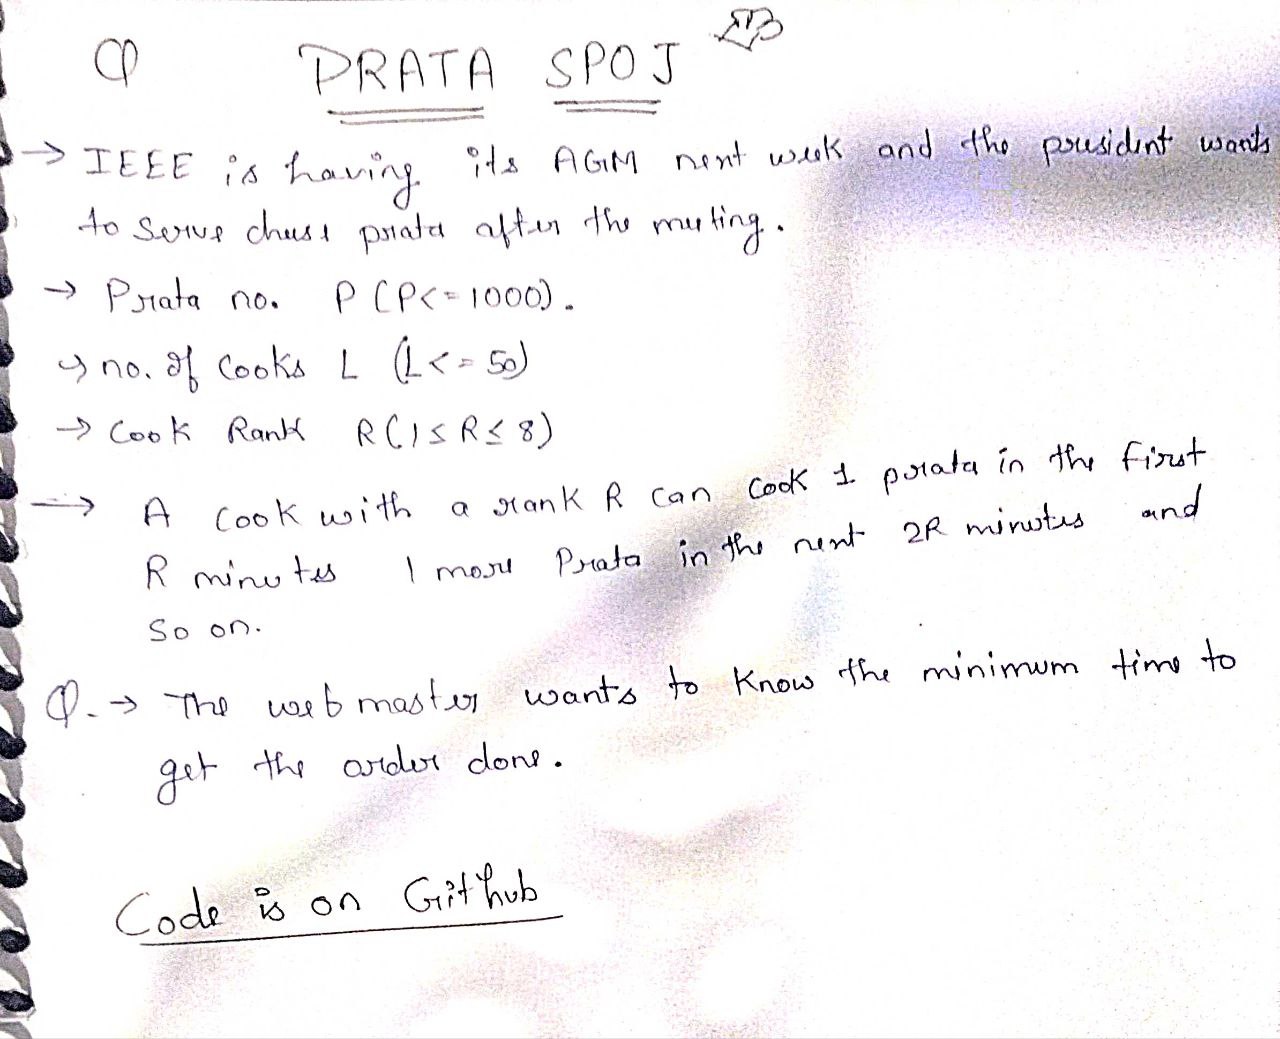 Q PRATA SPOJ
→ IEEE is having its AGM next week and the president wants
to serve cheese prata after the meeting.
→ Prata no. P (P<=1000).
→ no. of Cooks L (L<=50)
→ Cook Rank R(1≤R≤8)
→ A cook with a rank R can cook 1 prata in the first
R minutes 1 more Prata in the next 2R minutes and
so on.
Q. → The webmaster wants to know the minimum time to
get the order done.
Code is on GitHub